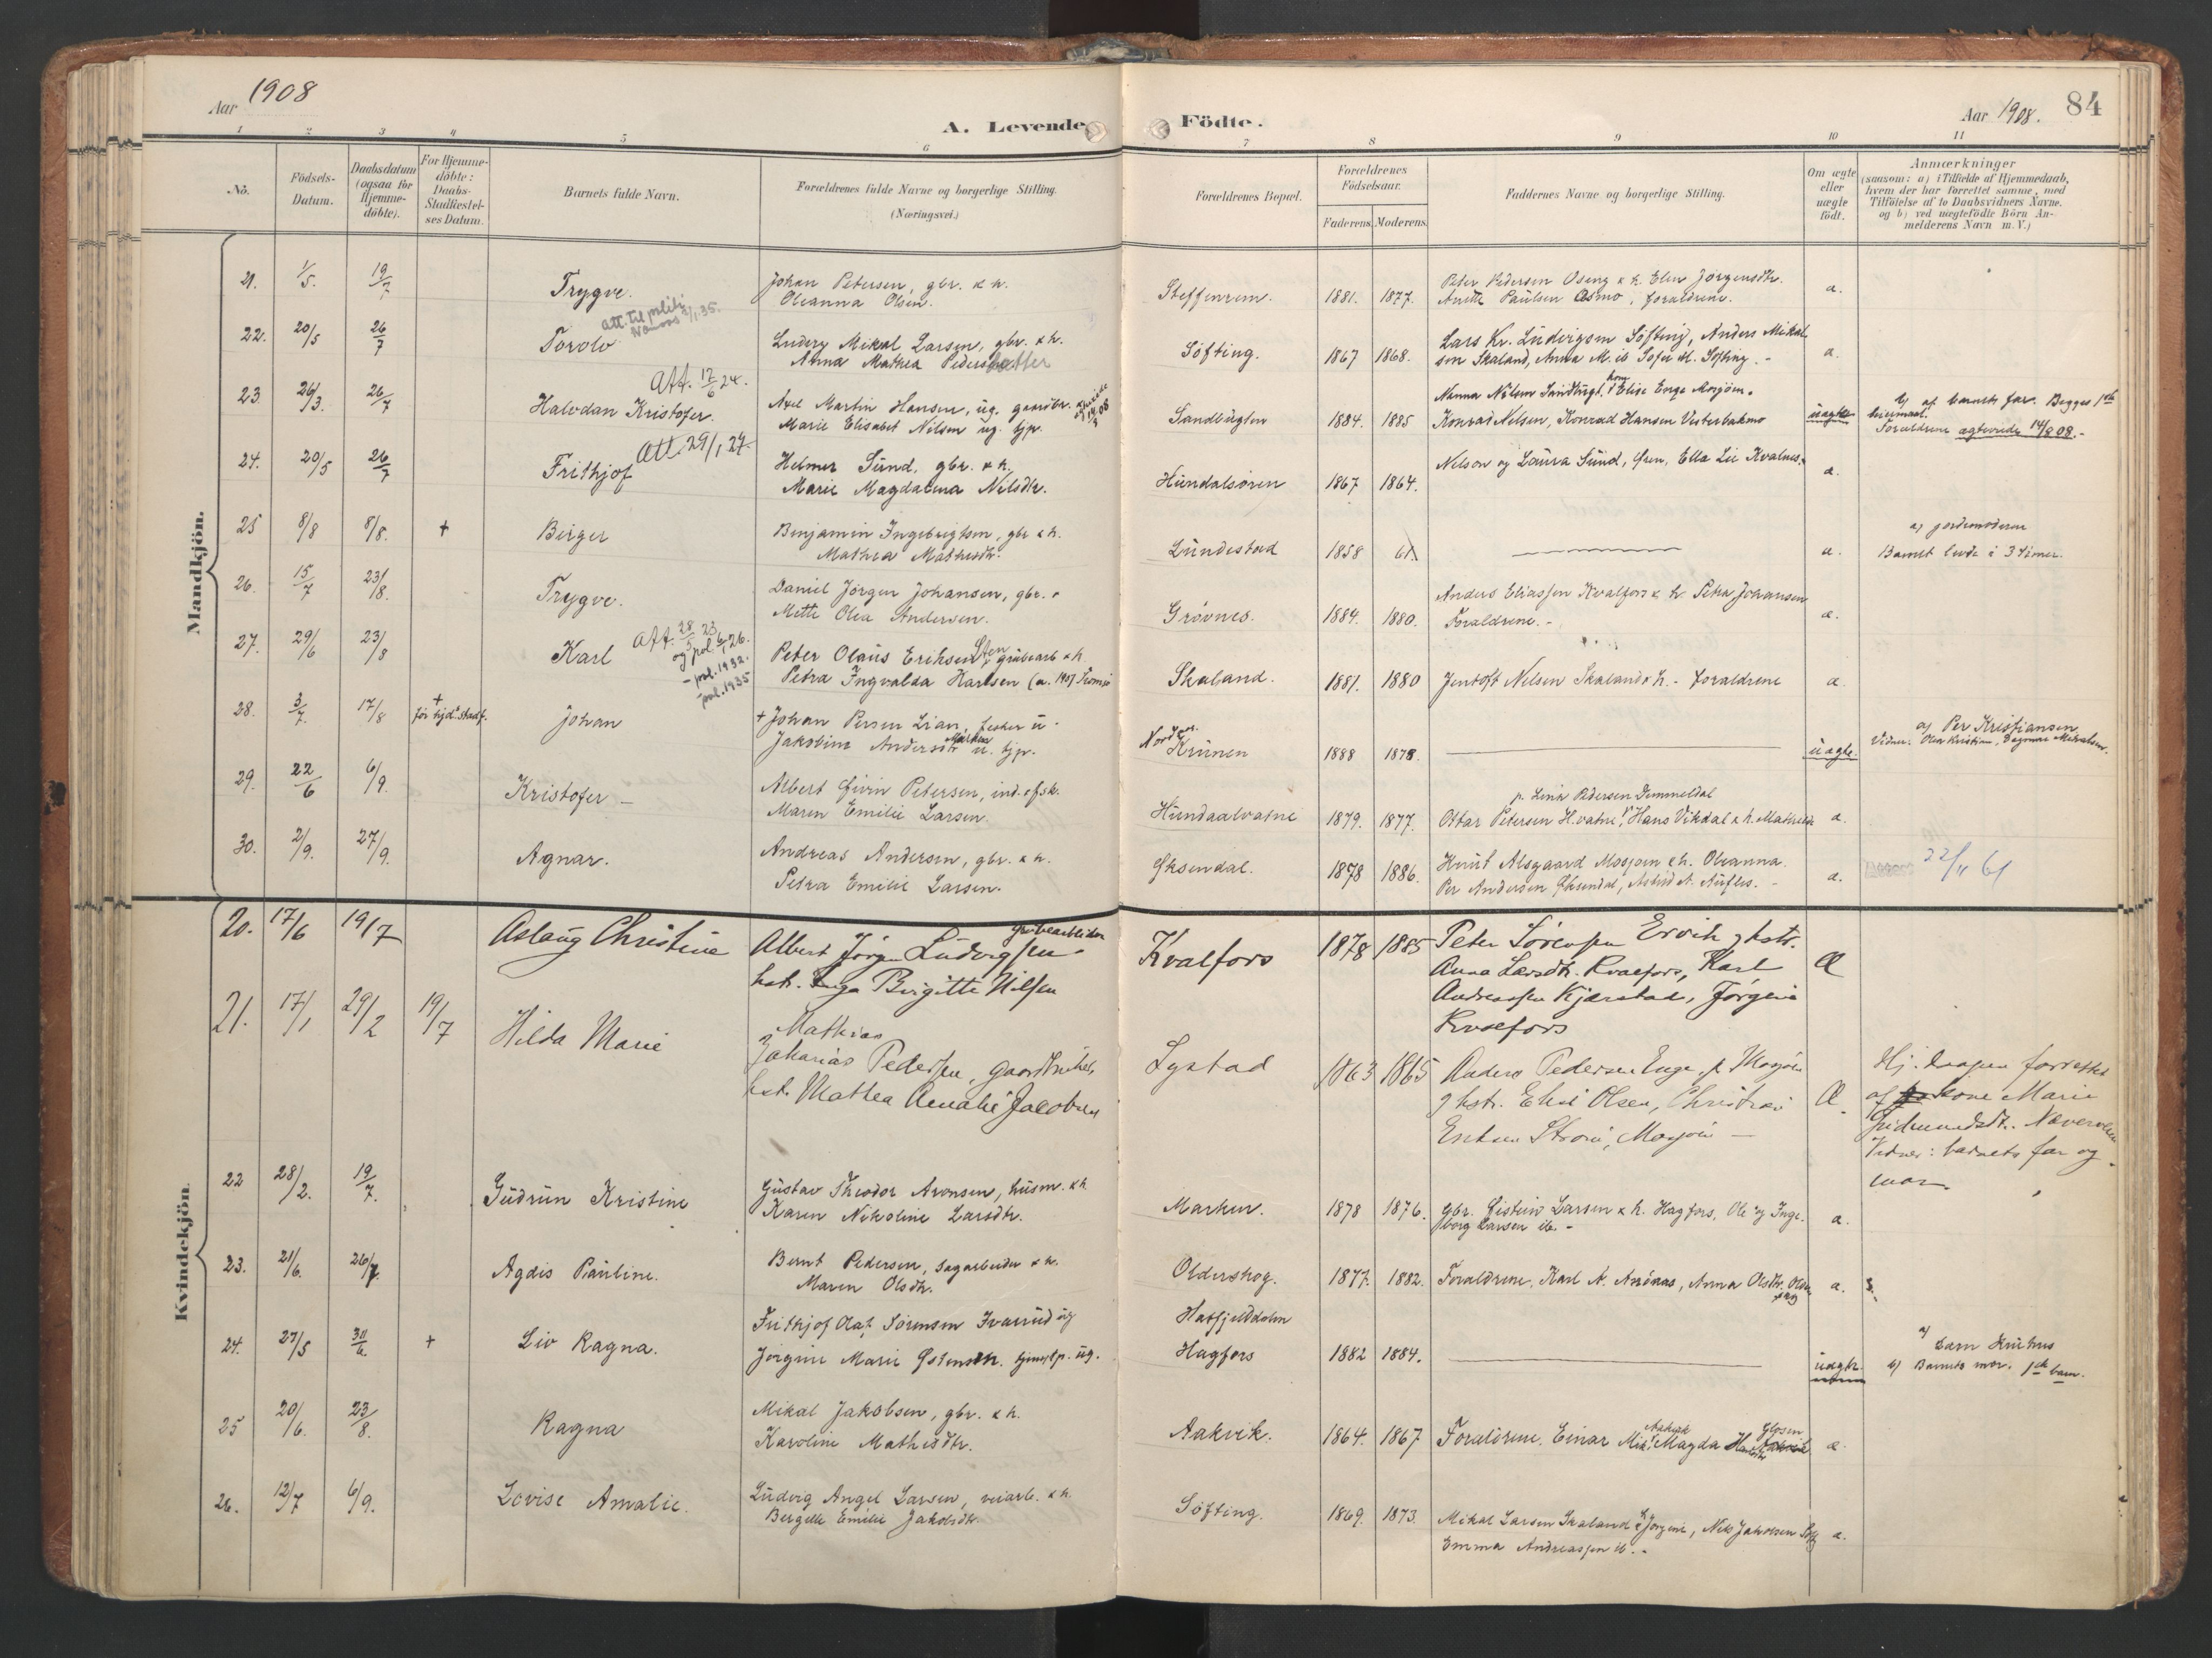 Aar 1908
A. Levende Födte.
Aar 1908. 84
1 2 3 4 5 6 7 8 9 10 11
No.
Födsels-Datum.
Daabsdatum (ogsaa for Hjemme-döbte).
For Hjemme-döbte: Daabs-Stadfæstel-ses Datum.
Barnets fulde Navn.
Forældrenes fulde Navne og borgerlige Stilling.
(Næringsvei.)
Forældrenes Bopæl.
Forældrenes Födselsaar.
Faderens. Moderens.
Faddernes Navne og borgerlige Stilling.
Om ægte eller uægte födt.
Anmærkninger
(saasom: a) i Tilfælde af Hjemmedaab,
hvem der har forrettet samme, med
Tilföielse af to Daabsvidners Navne.
og b) ved uægtefödte Börn An-
melderens Navn m. V.)
Mandkjön.
21. 1/5. 19/7 Trygve. Johan Petersen, gbr. & h. Steffenrem. 1881. 1877. Peter Pedersen Oseng & h. Elen Jörgensdtr. a.
Oleanna Olsen. Anette Paulsen Osmo, foraldrene.
Att. til politi
Namsos 2/1.35.
22. 20/5 26/7 Torolv Ludvig Mikal Larsen, gbr. & h. Söfting. 1867 1868. Lars Kr. Ludvigsen Söfting, Anders Mikal- a.
Anna Mathea Pedersdatter sen Skaland, Anna M. ib Sofie ib. Söfting. -
Att. 17/6 24.
23 26/3. 26/7 Halvdan Kristofer. Axel Martin Hansen, ug. gaardbr. Sandbugten 1884. 1885 Nanna Nilsen Sandbugt. Elise Enge Mosjöen. uægte b) af barnets far. Begges 1ste
Marie Elisabet Nilsen ug. tjp. Konrad Nelsen, Konrad Hansen Vesterbakmo leiermaal.
Foraldrene ægteviede 14/8 08.-
Att. 29/1 27.
24. 20/5 26/7 Frithjof Helmer Sund, gbr. & h. Hundalsören 1867 1864. Nelson og Laura Sund, Ören, Ella Lie Kvalnes. a.
Marie Magdalena Nilsdtr.
25 8/8 8/8. + Birger Benjamin Ingebrigtsen, gbr & h. Lundestad 1858 61. a. a) jordemoderen
Mathea Mathisdtr. Barnet levde i 3 timer.
26. 15/7 23/8. Trygve. Daniel Jörgen Johansen, gbr. & Grövnes. 1884. 1880. Anders Eliassen Kvalfors & h. Petra Johansen a.
Mette Olea Andersen. Foraldrene. -
27. 29/6 23/8 Karl Peter Olaus Eriksen Sten, grubearb & h Skaland. 1881. 1880 Jentoft Nelsen Skaland & h. - foraldrene a.
Petra Ingvalda Karlsen
Att. 28/5 23
og pol. 6/1 26.
- pol. 1932.
- pol. 1935
28. 3/7. 17/8 + Johan + Johan Persen Lian, fisker u. Krünen 1888 1878. uægte. a) Per Kristiansen
Jakobine Andersdtr u. tjp.
29. 22/6 6/9. Kristofer - Albert Eivin Petersen, ind. & fsk. Hundaalvatne 1879. 1877. a.
Maren Emilie Larsen. Ottar Petersen H.vatne, Hans Vikdal & h. Mathilde
30. 2/9. 27/9. Agnar. Andreas Andersen, gbr. & h. Öksendal. 1878 1886. Knut Alsgaard Mosjoen & h. Oleanna. a. 22/11 61
Petra Emilie Larsen. Per Andersen Öksendal, Astrid A. Aufles. -
Kvindekjön.
20. 17/6 19/7 Aslaug Christine Albert Jörgen Ludvigsen grubearbeider Kvalfors 1878 1885 Peter Sörensen Ervik og hstr. Æ
hstr. Inga Birgitte Nilsen Anna Larsdtr. Kvalfors, Karl
Andreassen Kjærstad, Jörgine
Kvalfors
21. 17/1 29/2 19/7 Hilda Marie Mathias
Zakarias Pedersen, gaardbruker, Lystad 1863 1865 Anders Pedersen Enge, p. Mosjöen Æ. Hj. daapen forrettet
hst. Mathea Amalie Jacobsen og hstr. Elise Olsen, af kone Marie
Mosjöen - Vidner: barnets far og
mor.
22 28/2. 19/7. Gudrun Kristine Gustav Theodor Aronsen, husm. & h. Marken. 1878 1876. gbr. Eistein Larsen & h. Hagfors, Ole og Inge- a.
Karen Nikoline Larsdtr. borg Larsen ib. -
23. 21/6. 26/7. Agdis Pauline. Bernt Pedersen, sagarbeider & h. Oldershog. 1877. 1882. Foraldrene, Karl A. Aanönas, Anna Olsdtr. a.
Maren Olsdtr.
24. 27/5 30/6. + Liv Ragna. Frithjof Olaf Sörensen Ivarrud ug Hatfjelddalen
Jörgine Marie Östensen. tjenestp. ug. Hagfors 1882 1884. uægte. a)
b) Barnets mor. 1ste barn.
25 20/6. 23/8. Ragna Mikal Jakobsen, gbr. & h. Aakvik. 1864. 1867 Foraldrene. Einar Mik. Aakvik Magda a
Karoline Mathisdtr.
26. 12/7 6/9. Lovise Amalie. Ludvig Angel Larsen, veiarb. & h. Söfting. 1869. 1873. Mikal Larsen Skaland & h. Jorgine, Nils Jakobsen Söft. a.
Bergitte Emilie Jakobsdtr. Emma Andreassen ib. -